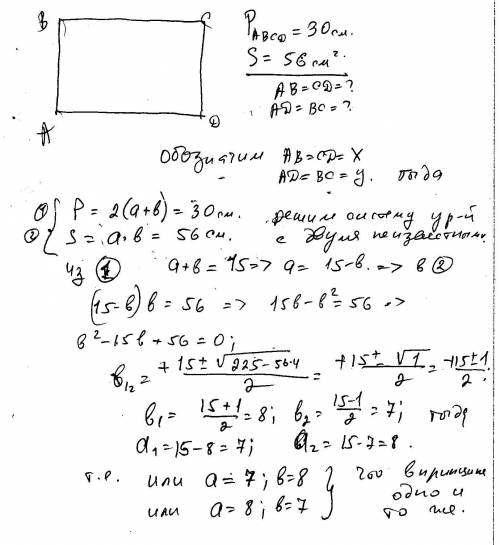 B C
A D
P_ABCD = 30 см.
S = 56 см².
AB = CD = ?
AD = BC = ?
Обозначим AB = CD = X
AD = BC = y. тогда
① { P = 2(a+в) = 30 см. решим систему ур-й
② { S = a·в = 56 см. с двумя неизвестными.
Из ① a+в = 15 => a = 15-в. => в ②
(15-в)в = 56 => 15в-в² = 56 =>
в²-15в+56 = 0;
в₁₂ = +15±√225-56·4 / 2 = +15±√1 / 2 = +15±1 / 2;
в₁ = 15+1 / 2 = 8; в₂ = 15-1 / 2 = 7; тогда
a₁ = 15-8 = 7; a₂ = 15-7 = 8.
т.е. или a = 7; в = 8 } что в принципе
или a = 8; в = 7 } одно и
то же.